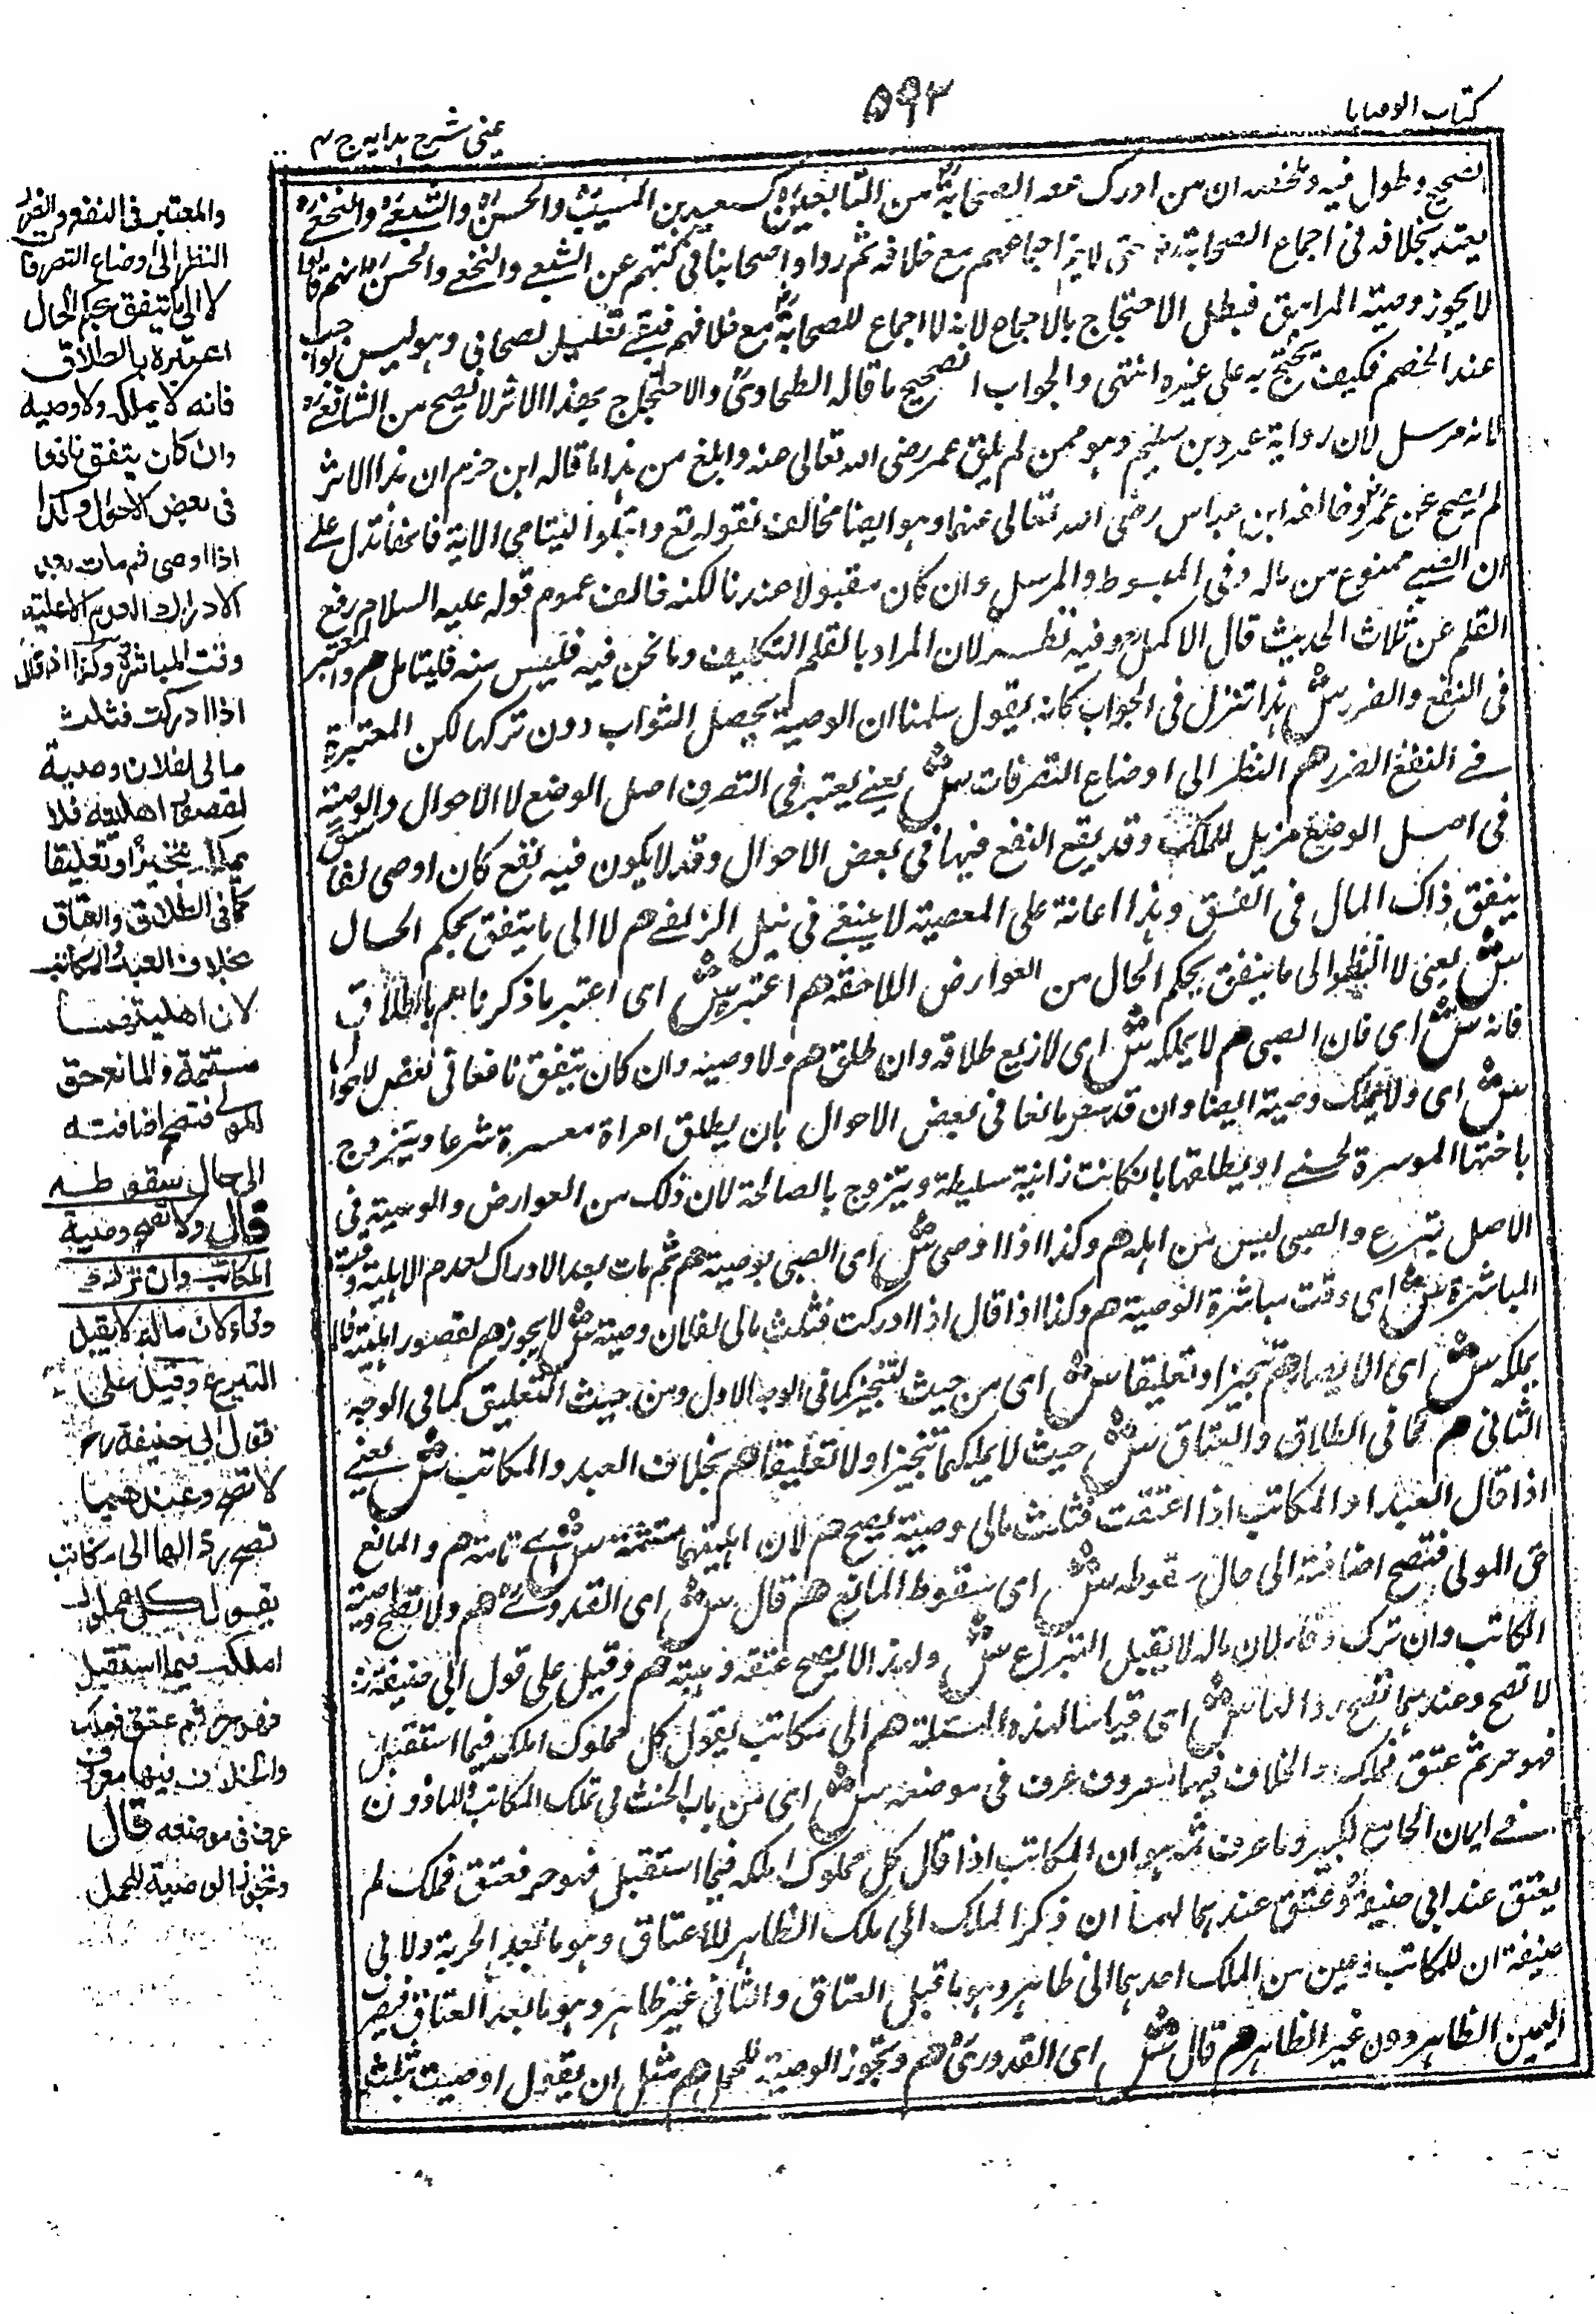 كتاب الوصايا
٥٩٣
عينى شرح هدايه ج ٤
الصحيح وطول فيه وملخصه ان من ادرك عهد الصحابة من التابعين كسعيد بن المسيب والحسن والشعبى والنخعى
يعتد بخلافه فى اجماع الصحابة حتى لا يتم اجماعهم مع خلافه ثم رووا اصحابنا فى كتبهم عن الشعبى والنخعى والحسن انهم قالوا
لا يجوز وصية المراهق فبطل الاحتجاج بالاجماع لانه لا اجماع للصحابة مع خلافهم فبقى تقليد الصحابى وهو ليس بواجب
عند الخصم فكيف يحتج به على غيره انتهى والجواب الصحيح ما قاله الطحاوى والاحتجاج بهذا الاثر لا يصح من الشافعى
لانه مرسل لان رواية عمرو بن سليم وهو ممن لم يلق عمر رضى الله تعالى عنه وابلغ من هذا ما قاله ابن حزم ان هذا الاثر
لم يصح عن عمر وخالفه ابن عباس رضى الله تعالى عنهما وهو ايضا مخالف لقوله تع وابتلوا اليتامى الاية فانها تدل على
ان الصبى ممنوع من ماله وفى المبسوط والمرسل وان كان مقبولا عندنا لكنه خالف عموم قوله عليه السلام رفع
القلم عن ثلاث الحديث قال الاكمل وفيه نظر لان المراد بالقلم التكليف وما نحن فيه فليس منه فليتامل هم والمعتبر
فى النفع والضرر ش هذا تنزل فى الجواب كانه يقول سلمنا ان الوصية يحصل الثواب دون تركها لكن المعتبرة
فى النفع الضرر هم النظر الى اوضاع التصرفات ش يعنى يعتبر فى التصرف اصل الوضع لا الاحوال والوصية
فى اصل الوضع مزيل للملك وقد يقع النفع فيها فى بعض الاحوال وقد لا يكون فيه نفع كان اوصى لفاسق
ينفق ذاك المال فى الفسق وهذا اعانة على المعصية لا ينبغى فى نيل الزلفى هم لا الى ما يتفق بحكم الحال
ش يعنى لا النظر الى ما يتفق بحكم الحال من العوارض اللاحقة هم اعتبره ش اى اعتبر ما ذكرنا هم بالطلاق
فانه ش اى فان الصبى هم لا يملكه ش اى لا يقع طلاقه وان طلق هم ولا وصيه وان كان يتفق نافعا فى بعض الاحوال
ش اى ولا يملك وصية ايضا وان قد يقع نافعا فى بعض الاحوال بان يطلق امراة معسرة شرعا ويتزوج
باختها الموسرة لحسنى او يطلقها بانكانت زانية سليطة ويتزوج بالصالحة لان ذلك من العوارض والوصية فى
الاصل تبرع والصبى ليس من اهله هم وكذا اذا اوصى ش اى الصبى بوصية هم ثم مات بعد الادراك لعدم الاهلية وقت
المباشرة ش اى وقت مباشرة الوصية هم وكذا اذا قال اذا ادركت فثلث مالى لفلان وصية ش لا يجوز هم لقصور اهليته فلا
يملكه ش اى الايصاء هم تنجيزا وتعليقا ش اى من حيث التنجيز كما فى الوجه الاول ومن حيث التعليق كما فى الوجه
الثانى هم كما فى الطلاق والعتاق ش حيث لا يملكهما تنجيزا ولا تعليقا هم بخلاف العبد والمكاتب ش يعنى
اذا قال العبد او المكاتب اذا اعتقت فثلث مالى وصية يصح هم لان اهليتهما مستتمة ش اى تامة هم والمانع
حق المولى فتصح اضافته الى حال سقوطه ش اى سقوط المانع هم قال ش اى القدورى هم ولا تصح وصية
المكاتب وان ترك وفاء لان ماله لا يقبل التبرع ش ولهذا لا يصح عتقه وهبته هم وقيل على قول ابى حنيفة
لا تصح وعندهما تصح ردا لها ش اى قياسا لهذه المسئلة هم الى مكاتب يقول كل مملوك املكه فيما استقبل
فهو حر ثم عتق فملك والخلاف فيها معروف عرف فى موضعه ش اى من باب الحنث فى تملك المكاتب والماذون
فى ايمان الجامع الكبير وما عرف ثمه هو ان المكاتب اذا قال كل مملوك املكه فيما استقبل فهو حر فعتق فملك لم
يعتق عند ابى حنيفة وعتق عندهما لهما ان ذكر الملك الى ملك الظاهر للاعتاق وهو ما بعد الحرية ولابى
حنيفة ان للمكاتب نوعين من الملك احدهما الى ظاهر وهو ما قبل العتاق والثانى غير ظاهر وهو ما بعد العتاق فيصرف
اليمين الظاهر دون غير الظاهر هم قال ش اى القدورى هم وتجوز الوصية للحمل هم مثل ان يقول اوصيت بثلث
والمعتبر فى النفع والضرر
النظر الى اوضاع التصرفات
لا الى ما يتفق بحكم الحال
اعتبره بالطلاق
فانه لا يملكه ولا وصيه
وان كان يتفق نافعا
فى بعض الاحوال وكذا
اذا اوصى ثم مات بعد
الادراك لعدم الاهلية
وقت المباشرة وكذا اذا قال
اذا ادركت فثلث
مالى لفلان وصية
لقصور اهليته فلا
يملكه تنجيزا وتعليقا
كما فى الطلاق والعتاق
بخلاف العبد والمكاتب
لان اهليتهما
مستتمة والمانع حق
المولى فتصح اضافته
الى حال سقوطه
قال ولا تصح وصية
المكاتب وان ترك
وفاء لان ماله لا يقبل
التبرع وقيل على
قول ابى حنيفة رح
لا تصح وعندهما
تصح ردا لها الى مكاتب
يقول كل مملوك
املكه فيما استقبل
فهو حر ثم عتق فملك
والخلاف فيها معروف
عرف فى موضعه قال
وتجوز الوصية للحمل